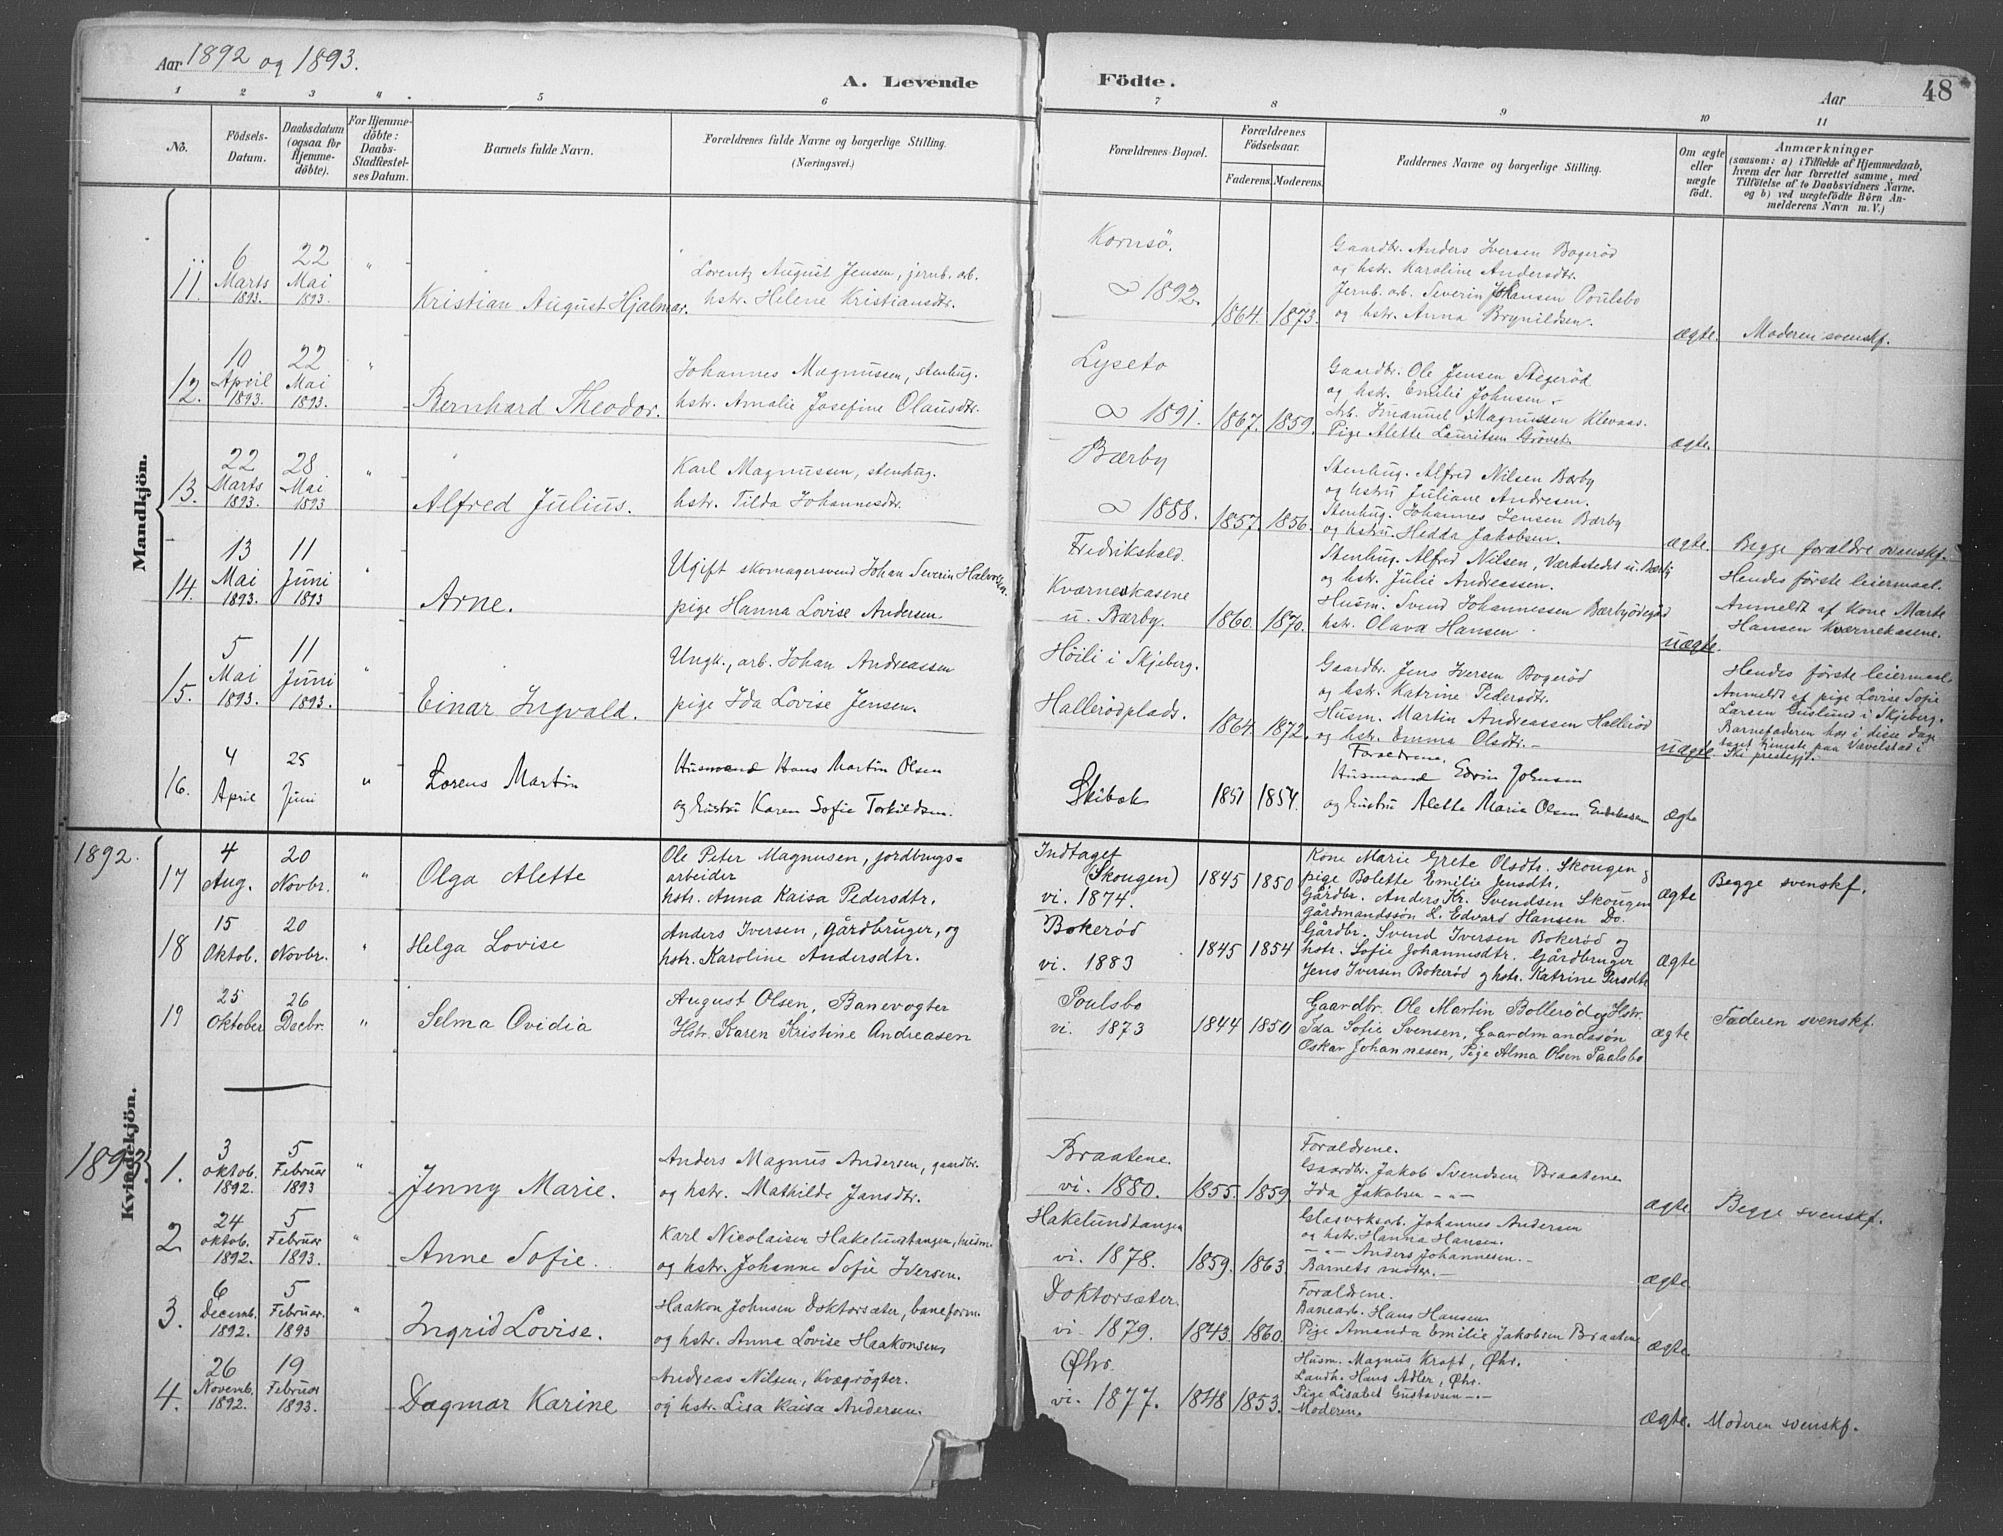 Aar 1892 og 1893.
A. Levende Födte.
Aar
48
1 2 3 4 5 6 7 8 9 10 11
No.
Födsels-Datum.
Daabsdatum (ogsaa for Hjemmedöbte).
For Hjemmedöbte: Daabs-Stadfæstelses Datum.
Barnets fulde Navn.
Forældrenes fulde Navne og borgerlige Stilling.
(Næringsvei.)
Forældrenes Bopæl.
Forældrenes Födselsaar.
Faderens. Moderens.
Faddernes Navne og borgerlige Stilling.
Om ægte eller uægte födt.
Anmærkninger
(saasom: a) i Tilfælde af Hjemmedaab, hvem der har forrettet samme, med Tilföielse af to Daabsvidners Navne, og b) ved uægtefödte Börn Anmelderens Navn m. V.)
Mandkjön.
11. 6 Marts 1893. 22 Mai 1893. "
Kristian August Hjalmar.
Lorentz August Jensen, jernb. arb.
hstr. Helene Kristiansdtr.
Kornsø.
∞ 1892.
1864. 1873.
Gaardbr. Anders Iversen Bogerød
og hstr. Karoline Andersdtr.
Jernb. arb. Severin Johansen Poulsbo
og hstr. Anna Brynildsen.
ægte. Moderen svensk f.
12. 10 April 1893. 22 Mai 1893. "
Bernhard Theodor.
Johannes Magnussen, stenhug.
hstr. Amalie Josefine Olausdtr.
Lyseto
∞ 1891.
1867. 1859.
Gaardbr. Ole Jensen Stegerød
og hstr. Emilie Johnsen.
Arb. Imanuel Magnussen Klevaas.
Pige Alette Lauritsen Grøvet.
ægte.
13. 22 Marts 1893. 28 Mai 1893 "
Alfred Julius.
Karl Magnussen, stenhug.
hstr. Tilda Johannesdtr.
Bærby
∞ 1888.
1857. 1856.
Stenhug. Alfred Nilsen Bærby
og hstru Juliane Andresen.
Stenhug. Johannes Jensen Bærby
og hstru. Hedda Jakobsen.
ægte. Begge forældre svensk f.
14. 13 Mai 1893. 11 Juni 1893 "
Arne.
Ugift skomagersvend Johan Severin Halvorsen.
pige Hanna Lovise Andersen.
Fredrikshald.
Kværneskasene
u. Bærby.
1860. 1870.
Stenhug. Alfred Nilsen, Værkstedt u. Bærby
og hstr. Julie Andreassen.
Husm. Svend Johannessen Bærbyødegård
hstr. Olava Hansen
uægte.
Hendes første leiermaal.
Anmeldt af kone Marte
Hansen Kværnekasene.
15. 5 Mai 1893. 11 Juni 1893. "
Einar Ingvald.
Ungk., arb. Johan Andreassen
pige Ida Lovise Jensen.
Høili i Skjeberg.
Hallerødplads.
1864. 1872.
Gaardbr. Jens Iversen Bogerød
og hstr. Katrine Pedersdtr.
Husm. Martin Andreassen Hallerød
og hstr. Emma Olsdtr. –
Forældrene.
uægte.
Hendes første leiermaal.
Anmeldt af pige Lovise Sofie
Larsen Guslund i Skjeberg.
Barnefaderen har i disse dage
taget tjeneste paa Vævelstad i
Ski prestegjd.
16. 4 April 25 Juni "
Lorens Martin
Husmand Hans Martin Olsen
og hustru Karen Sofie Torkildsen.
Skibæk
1851 1854.
Husmand Edvin Johnsen
og hustru Alette Maria Olsen
ægte
1892.
Kvindekjön.
17 4 Aug. 20 Novbr. "
Olga Alette
Ole Peter Magnusen, jordbrugs=
arbeider
hstr. Anna Kaisa Pedersdtr.
Indtaget
(Skougen)
vi. 1874.
1845 1850
Kone Marie Grete Olsdtr. Skougen
pige Bolette Emilie Jensdtr.
Gårdbr. Anders Kr. Svendsen Skougen
Gårdmandssøn L. Edvard Hansen Do.
ægte Begge svensk f.
18 15 Oktob. 20 Novbr. "
Helga Lovise
Anders Iversen, gårdbruger, og
hstr. Karoline Andersdtr.
Bokerød
vi. 1883
1845 1854
Gårdbr. Svend Iversen Bokerød og
hstr. Sofie Johannesdtr. Gårdbruger
Jens Iversen Bokerød og hstr. Katrine Persdtr.
ægte
19 25 Oktober 26 Decbr. "
Selma Ovidia
August Olsen, Banevogter
Hstr. Karen Kristine Andreasen
Poulsbo
vi. 1873
1844 1850
Gaardbr. Ole Martin Bollerød og Hstr.
Ida Sofie Svensen, Gaardmandssøn
Oskar Johannesen, Pige Alma Olsen Paalsbo
ægte Faderen svensk f.
1893.
1. 3 oktob. 1892. 5 Februar 1893 "
Jenny Marie.
Anders Magnus Andersen, gaardbr.
og hstr. Mathilde Jansdtr.
Braatene.
vi. 1880.
1855. 1859.
Forældrene.
Gaardbr. Jakob Svendsen Braatene
Ida Jakobsen – " –
ægte. Begge svensk f.
2 24 oktob. 1892. 5 Februar 1893. "
Anne Sofie.
Karl Nicolaisen Hakelundtangen, husm.
og hstr. Johanne Sofie Iversen.
Hakelundtangen
vi. 1878.
1859. 1863.
Glasverksarb. Johannes Andersen
og hstr. Hanna Hansen.
– " – Anders Johannesen. –
Barnets moder. –
ægte.
3. 6 Decemb. 1892. 5 Februar. 1893 "
Ingrid Lovise.
Haakon Johnsen Doktorsæter, baneform.
og hstr. Anna Lovise Haakonsen,
Doktorsæter.
vi. 1879.
1843. 1860.
Forældrene.
Banearb. Hans Hansen
Pige Amanda Emilie Jakobsen Braatene
ægte.
4. 26 Novemb. 1892. 19 Februar 1893.
Dagmar Karine
Andreas Nilsen, kvægrøgter.
og hstr. Lisa Kaisa Andersen.
Øhr.
vi. 1877.
1848 1853.
Husm. Magnus Kroft, Øhr.
Landh. Hans Adler, Øhr.
Pige Lisabet Gustavsen – " –
Moderen.
ægte. Moderen svensk f.